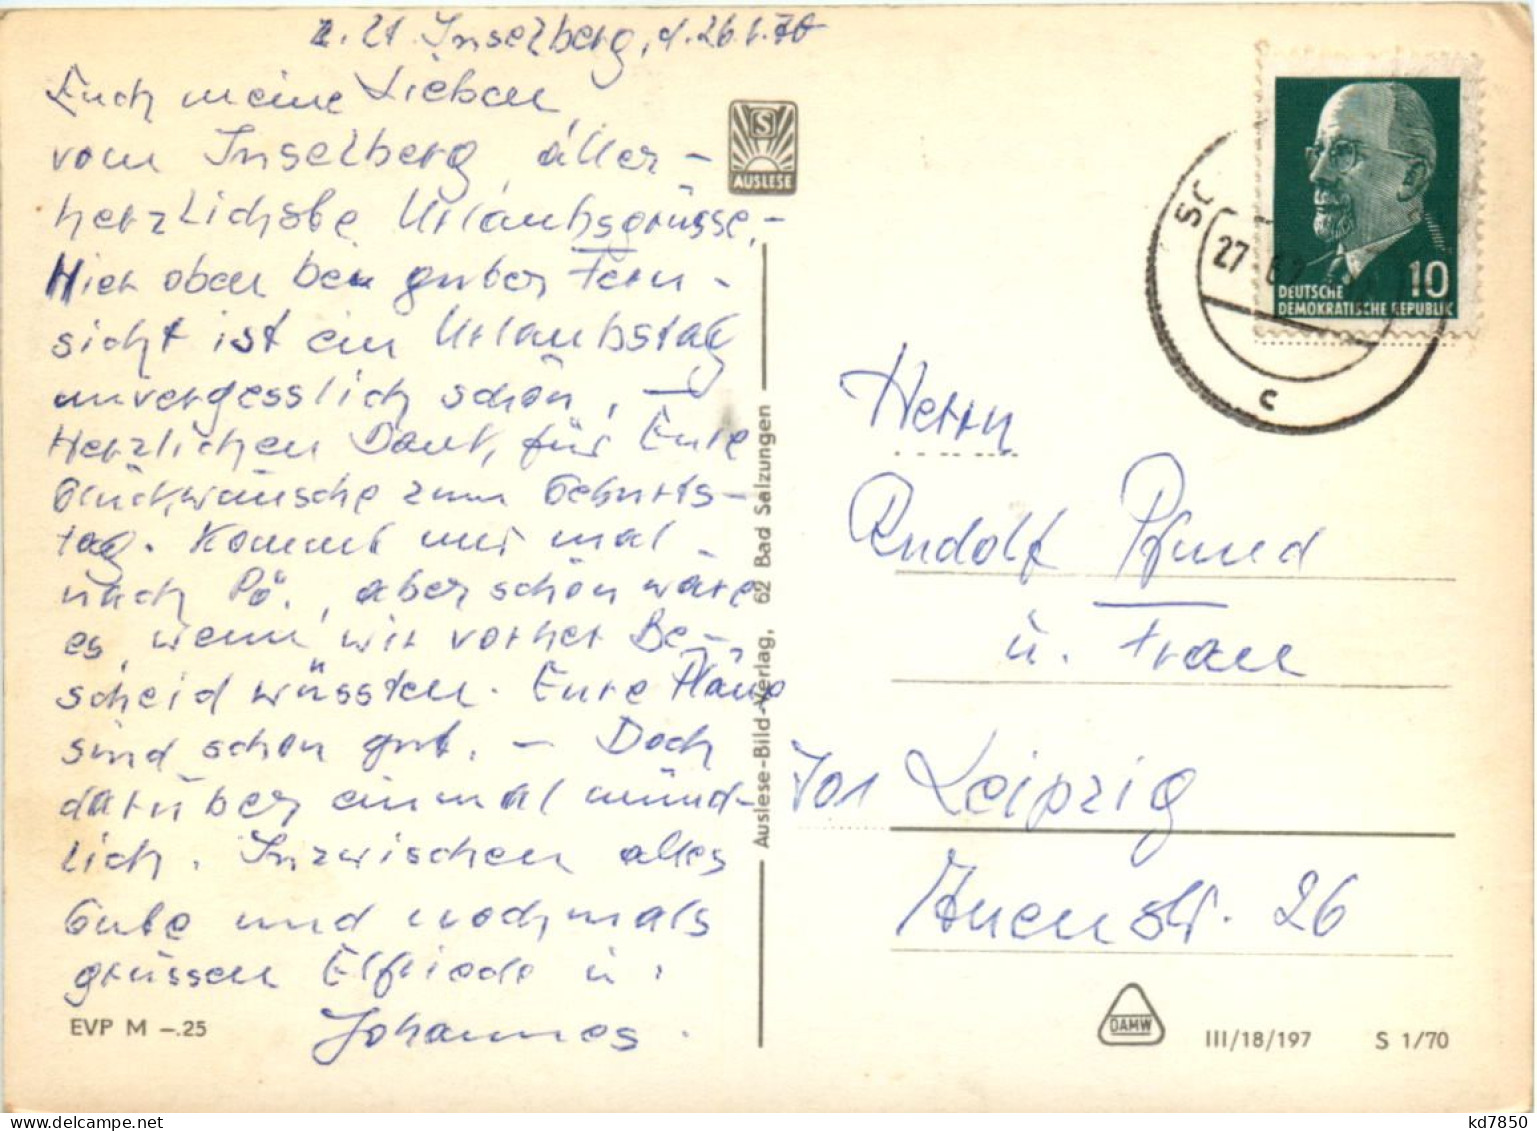 z. Zt. Inselberg, d. 26.6.70
Euch meine Lieben,
vom Inselberg, aller-
herzlichste Urlaubsgrüsse, -
Hier oben bei guter Fern-
sicht ist ein Urlaubstag
unvergesslich schön, -
Herzlichen Dank, für Eure
Glückwünsche zum Geburts-
tag. Kommt nur mal
nach Pö., aber schön wäre
es, wenn wir vorher Be-
scheid wüssten. Eure Pläne
sind schon gut, - Doch
darüber einmal münd-
lich. Inzwischen alles
Gute und nochmals
grüssen Elfriede u.
Johannes.
EVP M -.25
S
AUSLESE
Auslese-Bild-Verlag, 62 Bad Salzungen
27
C
10
DEUTSCHE
DEMOKRATISCHE REPUBLIK
Herrn
Rudolf Pfund
u. Frau
701 Leipzig
Auenstr. 26
DAMW
III/18/197 S 1/70
kd7850